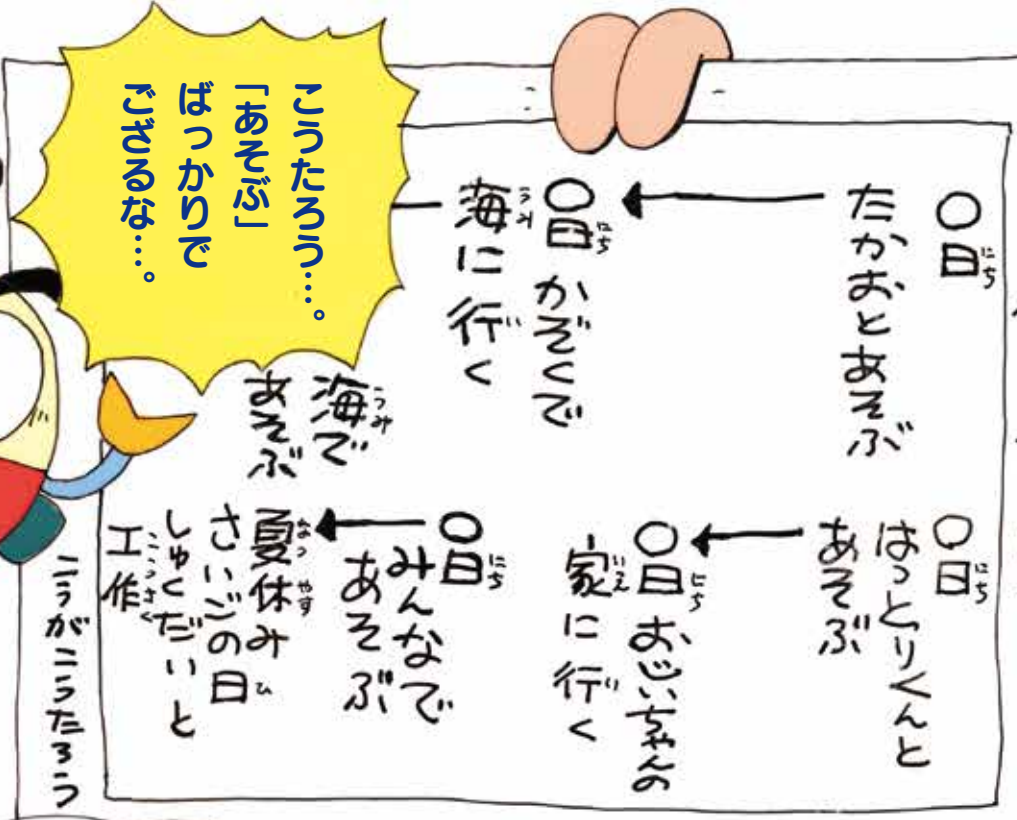 こうたろう…。
「あそぶ」
ばっかりで
ござるな…。
〇日
たかおとあそぶ
〇日かぞくで
海に行く
海で
あそぶ
〇日
はっとりくんと
あそぶ
〇日おじいちゃんの
家に行く
〇日
みんなで
あそぶ
夏休み
さいごの日
しゅくだいと
工作
こうがこうたろう